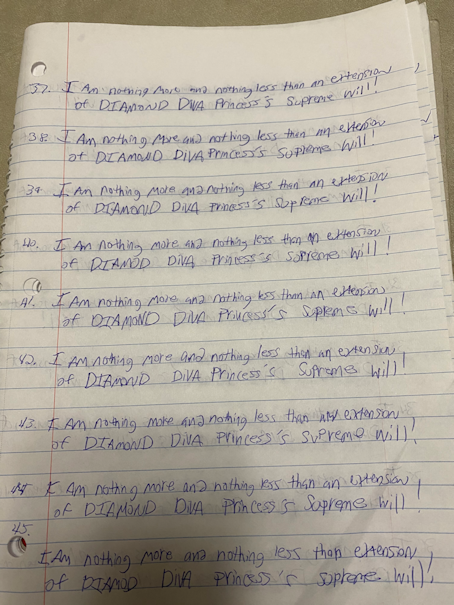 37. I Am nothing more and nothing less than an extension
of DIAMOND DIVA Princess's Supreme Will!
38. I Am nothing more and nothing less than an extension
of DIAMOND DIVA Princess's Supreme Will!
39. I Am nothing more and nothing less than an extension
of DIAMOND DIVA Princess's Supreme Will!
40. I Am nothing more and nothing less than an extension
of DIAMOD DIVA Princess's Supreme Will!
41. I Am nothing more and nothing less than an extension
of DIAMOND DIVA Princess's Supreme Will!
42. I Am nothing more and nothing less than an extension
of DIAMOND DIVA Princess's Supremes Will!
43. I Am nothing more and nothing less than extension
of DIAMOND DIVA Princess's Supreme Will!
44. I Am nothing more and nothing less than an extension
of DIAMOND DIVA Princess's Supreme Will!
45.
I Am nothing more and nothing less than extension
of DIAMOD DIVA Princess's supreme Will!